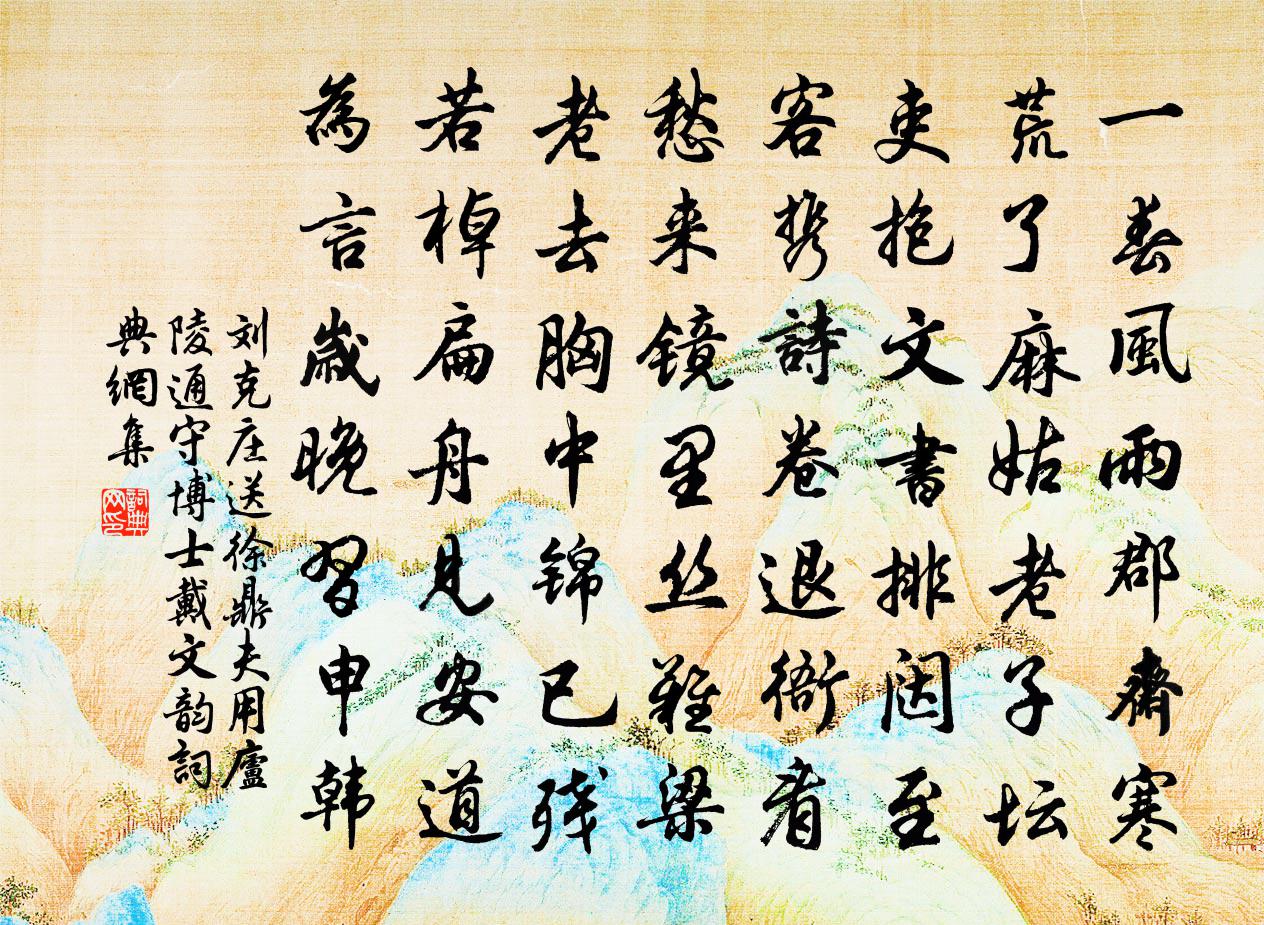 一春風雨郡齋寒
荒了麻姑老子坛
吏抱文書排闼至
客携詩卷退衙看
愁来镜里丝難梁
老去胸中锦已残
若棹扁舟見安道
為言歲晚習申韩
刘克庄送徐鼎夫用廬
陵通守博士戴文韵詞
典網集
詞典网印